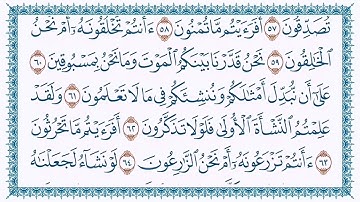 تُصَدِّقُونَ ٥٧ أَفَرَءَيْتُم مَّا تُمْنُونَ ٥٨ ءَأَنتُمْ تَخْلُقُونَهُۥٓ أَمْ نَحْنُ
ٱلْخَٰلِقُونَ ٥٩ نَحْنُ قَدَّرْنَا بَيْنَكُمُ ٱلْمَوْتَ وَمَا نَحْنُ بِمَسْبُوقِينَ ٦٠
عَلَىٰٓ أَن نُّبَدِّلَ أَمْثَٰلَكُمْ وَنُنشِئَكُمْ فِى مَا لَا تَعْلَمُونَ ٦١ وَلَقَدْ
عَلِمْتُمُ ٱلنَّشْأَةَ ٱلْأُولَىٰ فَلَوْلَا تَذَكَّرُونَ ٦٢ أَفَرَءَيْتُم مَّا تَحْرُثُونَ
٦٣ ءَأَنتُمْ تَزْرَعُونَهُۥٓ أَمْ نَحْنُ ٱلزَّٰرِعُونَ ٦٤ لَوْ نَشَآءُ لَجَعَلْنَٰهُ